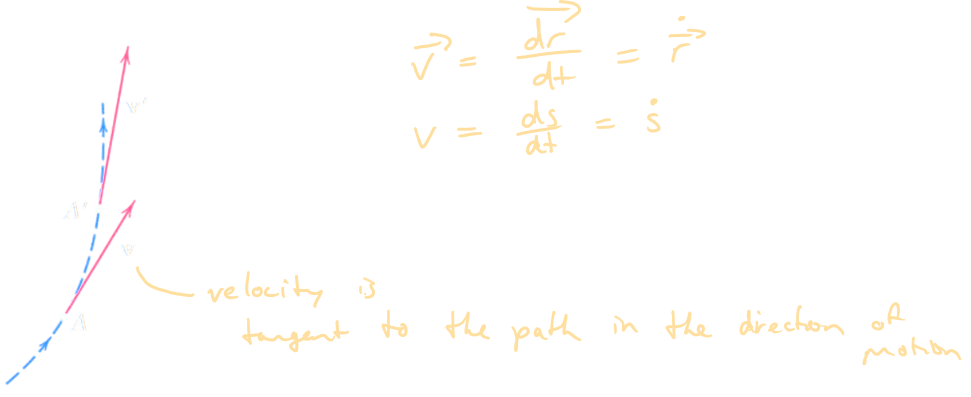 v⃗ = d⃗r/dt = ṙ⃗
v = ds/dt = ṡ
v'
A'
v
velocity is
tangent to the path in the direction of
motion
A